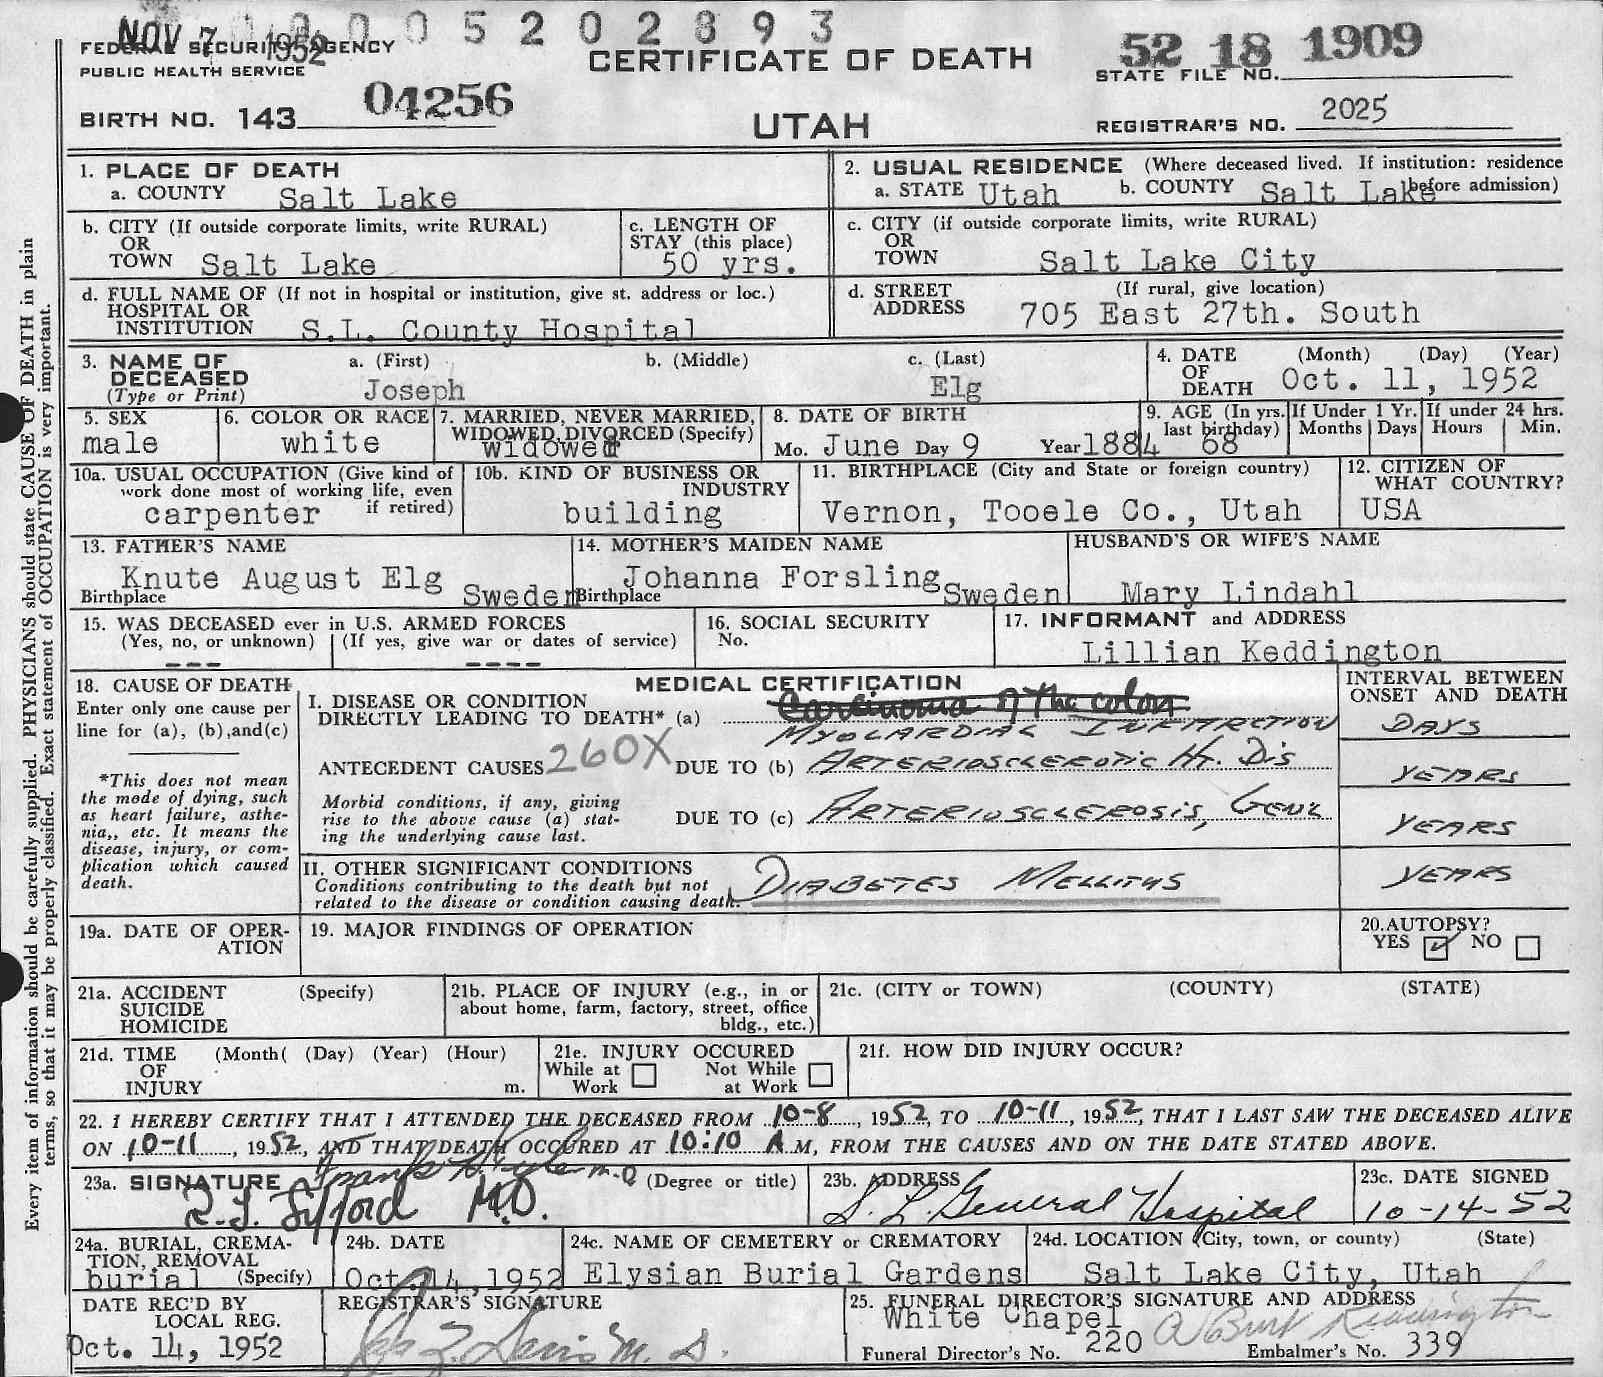 NOV 7 1952
0005202893
FEDERAL SECURITY AGENCY
PUBLIC HEALTH SERVICE
CERTIFICATE OF DEATH
52 18 1909
STATE FILE NO.
BIRTH NO. 143 04256
UTAH
REGISTRAR'S NO. 2025
Every item of information should be carefully supplied. PHYSICIANS should state CAUSE OF DEATH in plain
terms, so that it may be properly classified. Exact statement of OCCUPATION is very important.
1. PLACE OF DEATH
a. COUNTY Salt Lake
2. USUAL RESIDENCE (Where deceased lived. If institution: residence
before admission)
a. STATE Utah b. COUNTY Salt Lake
b. CITY (If outside corporate limits, write RURAL)
OR
TOWN Salt Lake
c. LENGTH OF
STAY (this place)
50 yrs.
c. CITY (if outside corporate limits, write RURAL)
OR
TOWN Salt Lake City
d. FULL NAME OF (If not in hospital or institution, give st. address or loc.)
HOSPITAL OR
INSTITUTION S.L. County Hospital
d. STREET (If rural, give location)
ADDRESS 705 East 27th. South
3. NAME OF a. (First) b. (Middle) c. (Last)
DECEASED
(Type or Print) Joseph Elg
4. DATE (Month) (Day) (Year)
OF
DEATH Oct. 11, 1952
5. SEX
male
6. COLOR OR RACE
white
7. MARRIED, NEVER MARRIED,
WIDOWED, DIVORCED (Specify)
widowed
8. DATE OF BIRTH
Mo. June Day 9 Year 1884
9. AGE (In yrs.
last birthday)
68
If Under 1 Yr.
Months Days
If under 24 hrs.
Hours Min.
10a. USUAL OCCUPATION (Give kind of
work done most of working life, even
if retired)
carpenter
10b. KIND OF BUSINESS OR
INDUSTRY
building
11. BIRTHPLACE (City and State or foreign country)
Vernon, Tooele Co., Utah
12. CITIZEN OF
WHAT COUNTRY?
USA
13. FATHER'S NAME
Knute August Elg
Birthplace Sweden
14. MOTHER'S MAIDEN NAME
Johanna Forsling
Birthplace Sweden
HUSBAND'S OR WIFE'S NAME
Mary Lindahl
15. WAS DECEASED ever in U.S. ARMED FORCES
(Yes, no, or unknown) (If yes, give war or dates of service)
--- ----
16. SOCIAL SECURITY
No.
17. INFORMANT and ADDRESS
Lillian Keddington
18. CAUSE OF DEATH
Enter only one cause per
line for (a), (b), and (c)
*This does not mean
the mode of dying, such
as heart failure, asthe-
nia,, etc. It means the
disease, injury, or com-
plication which caused
death.
MEDICAL CERTIFICATION
INTERVAL BETWEEN
ONSET AND DEATH
I. DISEASE OR CONDITION
DIRECTLY LEADING TO DEATH* (a) Carcinoma of the colon
MYOCARDIAL INFARCTION DAYS
ANTECEDENT CAUSES 260X DUE TO (b) ARTERIOSCLEROTIC HT. DIS YEARS
Morbid conditions, if any, giving
rise to the above cause (a) stat-
ing the underlying cause last.
DUE TO (c) ARTERIOSCLEROSIS, GENL YEARS
II. OTHER SIGNIFICANT CONDITIONS
Conditions contributing to the death but not
related to the disease or condition causing death.
DIABETES MELLITUS YEARS
19a. DATE OF OPER-
ATION
19. MAJOR FINDINGS OF OPERATION
20. AUTOPSY?
YES ☑ NO ☐
21a. ACCIDENT (Specify)
SUICIDE
HOMICIDE
21b. PLACE OF INJURY (e.g., in or
about home, farm, factory, street, office
bldg., etc.)
21c. (CITY or TOWN) (COUNTY) (STATE)
21d. TIME (Month( (Day) (Year) (Hour)
OF
INJURY m.
21e. INJURY OCCURED
While at Work ☐ Not While at Work ☐
21f. HOW DID INJURY OCCUR?
22. I HEREBY CERTIFY THAT I ATTENDED THE DECEASED FROM 10-8, 1952, TO 10-11, 1952, THAT I LAST SAW THE DECEASED ALIVE
ON 10-11, 1952, AND THAT DEATH OCCURED AT 10:10 A M, FROM THE CAUSES AND ON THE DATE STATED ABOVE.
23a. SIGNATURE Frank H. Tyler M.D. (Degree or title)
M.D.
23b. ADDRESS
S. L. General Hospital
23c. DATE SIGNED
10-14-52
24a. BURIAL, CREMA-
TION, REMOVAL
burial (Specify)
24b. DATE
Oct. 14, 1952
24c. NAME OF CEMETERY or CREMATORY
Elysian Burial Gardens
24d. LOCATION (City, town, or county) (State)
Salt Lake City, Utah
DATE REC'D BY
LOCAL REG.
Oct. 14, 1952
REGISTRAR'S SIGNATURE
25. FUNERAL DIRECTOR'S SIGNATURE AND ADDRESS
White Chapel
Funeral Director's No. 220 Embalmer's No. 339